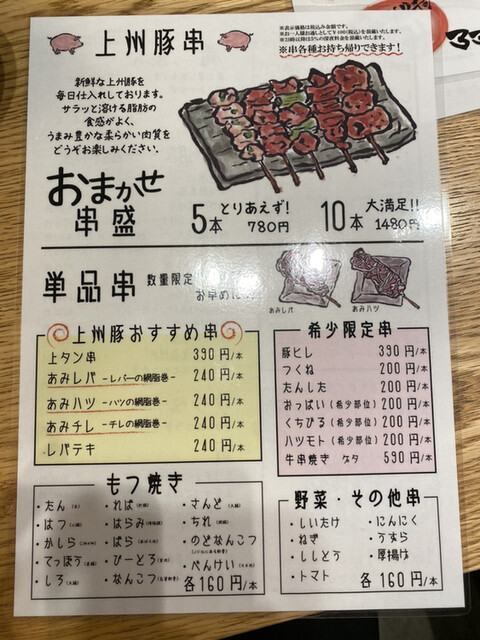 上州豚串
※表示価格は税込み金額です。
※お一人様お通しとして¥400(税込)を頂戴いたします。
※串各種お持ち帰りできます!
新鮮な上州豚を
毎日仕入れしております。
サラッと溶ける脂肪の
食感がよく、
うまみ豊かな柔らかい肉質を
どうぞお楽しみください。
おまかせ
串盛
5本 とりあえず! 780円
10本 大満足!! 1480円
単品串 数量限定
お早めに
あみレバ
あみハツ
上州豚おすすめ串
上タン串 390円/本
あみレバ -レバーの網脂巻- 240円/本
あみハツ -ハツの網脂巻- 240円/本
あみチレ -チレの網脂巻- 240円/本
レバテキ 240円/本
希少限定串
豚ヒレ 390円/本
つくね 200円/本
たんした 200円/本
おっぱい(希少部位) 200円/本
くちびる(希少部位) 200円/本
ハツモト(希少部位) 200円/本
牛串焼き ゲタ 590円/本
もつ焼き
・たん
・はつ
・かしら
・てっぽう
・しろ
・ればー
・はらみ
・ばら
・ひーとろ
・なんこつ
・さんど
・ちれ
・のどなんこつ
・べんけい
各160円/本
野菜・その他串
・しいたけ
・ねぎ
・ししとう
・トマト
・にんにく
・うずら
・厚揚げ
各160円/本